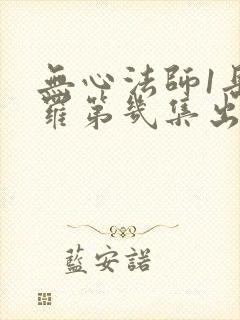 無心法師1岳
羅第幾集出
藍安諾